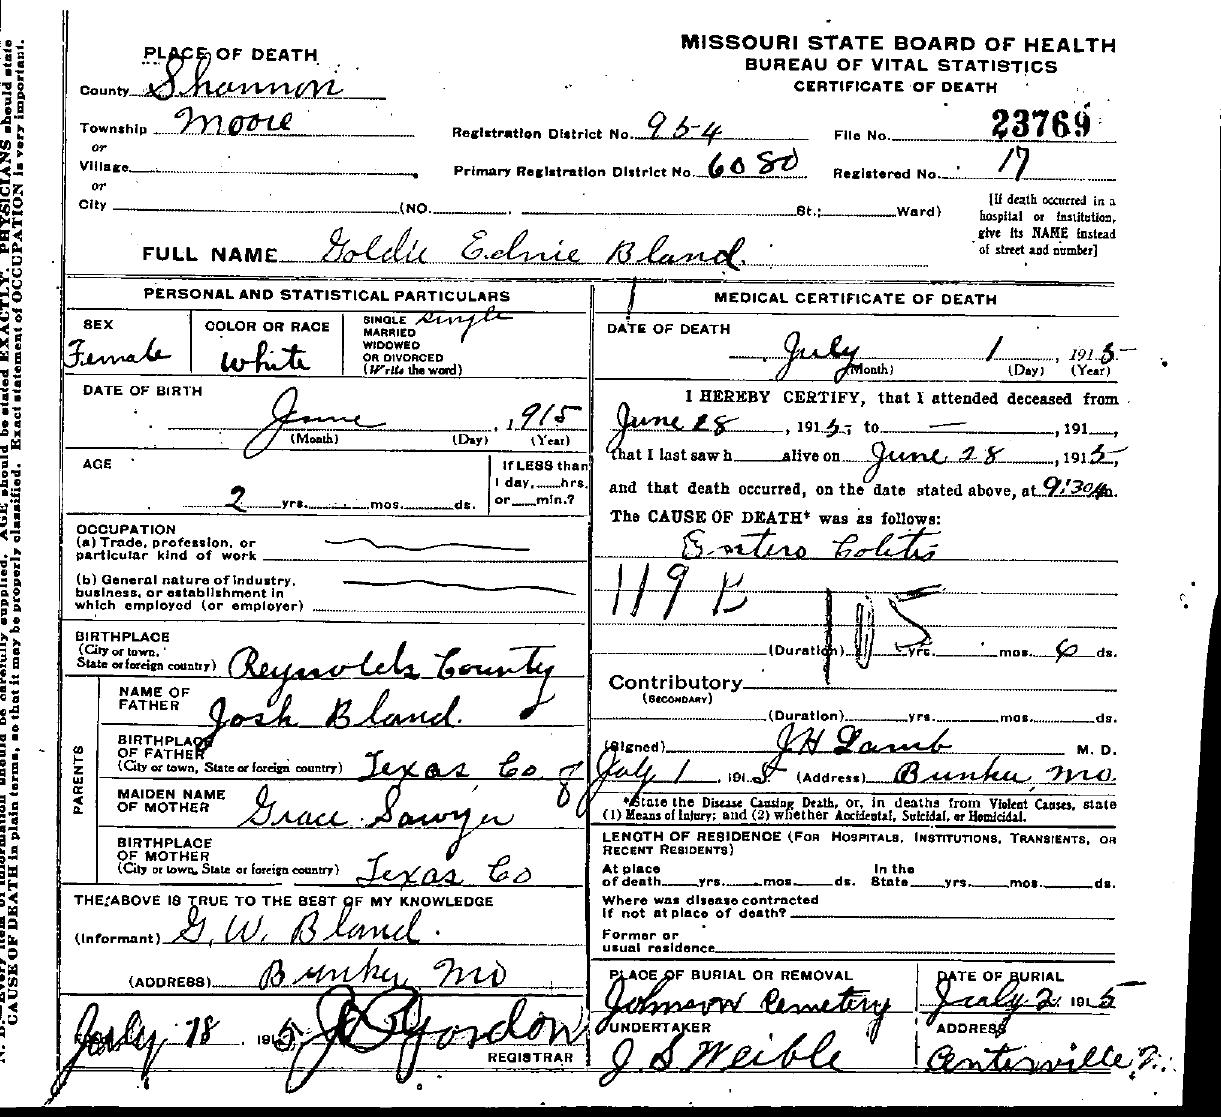 MISSOURI STATE BOARD OF HEALTH
BUREAU OF VITAL STATISTICS
CERTIFICATE OF DEATH
PLACE OF DEATH
County Shannon
Township Moore
or
Village
or
City (NO. St.; Ward)
Registration District No. 954 File No. 23769
Primary Registration District No. 6080 Registered No. 17
[If death occurred in a
hospital or institution,
give its NAME instead
of street and number]
FULL NAME Goldie Ednie Bland
PERSONAL AND STATISTICAL PARTICULARS
SEX
Female
COLOR OR RACE
White
SINGLE single
MARRIED
WIDOWED
OR DIVORCED
(Write the word)
DATE OF BIRTH
June , 1915
(Month) (Day) (Year)
AGE
2 yrs. mos. ds.
If LESS than
1 day, hrs.
or min.?
OCCUPATION
(a) Trade, profession, or
particular kind of work
(b) General nature of industry,
business, or establishment in
which employed (or employer)
BIRTHPLACE
(City or town,
State or foreign country) Reynolds County
PARENTS
NAME OF
FATHER Josh Bland.
BIRTHPLACE
OF FATHER
(City or town, State or foreign country) Texas Co.
MAIDEN NAME
OF MOTHER Grace Sawyer
BIRTHPLACE
OF MOTHER
(City or town, State or foreign country) Texas Co
THE ABOVE IS TRUE TO THE BEST OF MY KNOWLEDGE
(Informant) G. W. Bland.
(ADDRESS) Bunker Mo
July 18 1915 Gordon
REGISTRAR
MEDICAL CERTIFICATE OF DEATH
DATE OF DEATH
July 1 , 1915
(Month) (Day) (Year)
I HEREBY CERTIFY, that I attended deceased from
June 28 , 1915, to — , 191 ,
that I last saw h alive on June 28 , 1915,
and that death occurred, on the date stated above, at 9:30 m.
The CAUSE OF DEATH* was as follows:
Entero Colitis
119 B 105
(Duration) yrs. mos. 6 ds.
Contributory
(SECONDARY)
(Duration) yrs. mos. ds.
(Signed) J H Lamb M. D.
July 1 , 1915 (Address) Bunker, Mo.
*State the Disease Causing Death, or, in deaths from Violent Causes, state
(1) Means of Injury; and (2) whether Accidental, Suicidal, or Homicidal.
LENGTH OF RESIDENCE (FOR HOSPITALS, INSTITUTIONS, TRANSIENTS, OR
RECENT RESIDENTS)
At place In the
of death yrs. mos. ds. State yrs. mos. ds.
Where was disease contracted
if not at place of death?
Former or
usual residence
PLACE OF BURIAL OR REMOVAL
Johnson Cemetery
DATE OF BURIAL
July 2 1915
UNDERTAKER
J. S Weible
ADDRESS
Centerville
N. B.—Every item of information should be carefully supplied. AGE should be stated EXACTLY. PHYSICIANS should state
CAUSE OF DEATH in plain terms, so that it may be properly classified. Exact statement of OCCUPATION is very important.